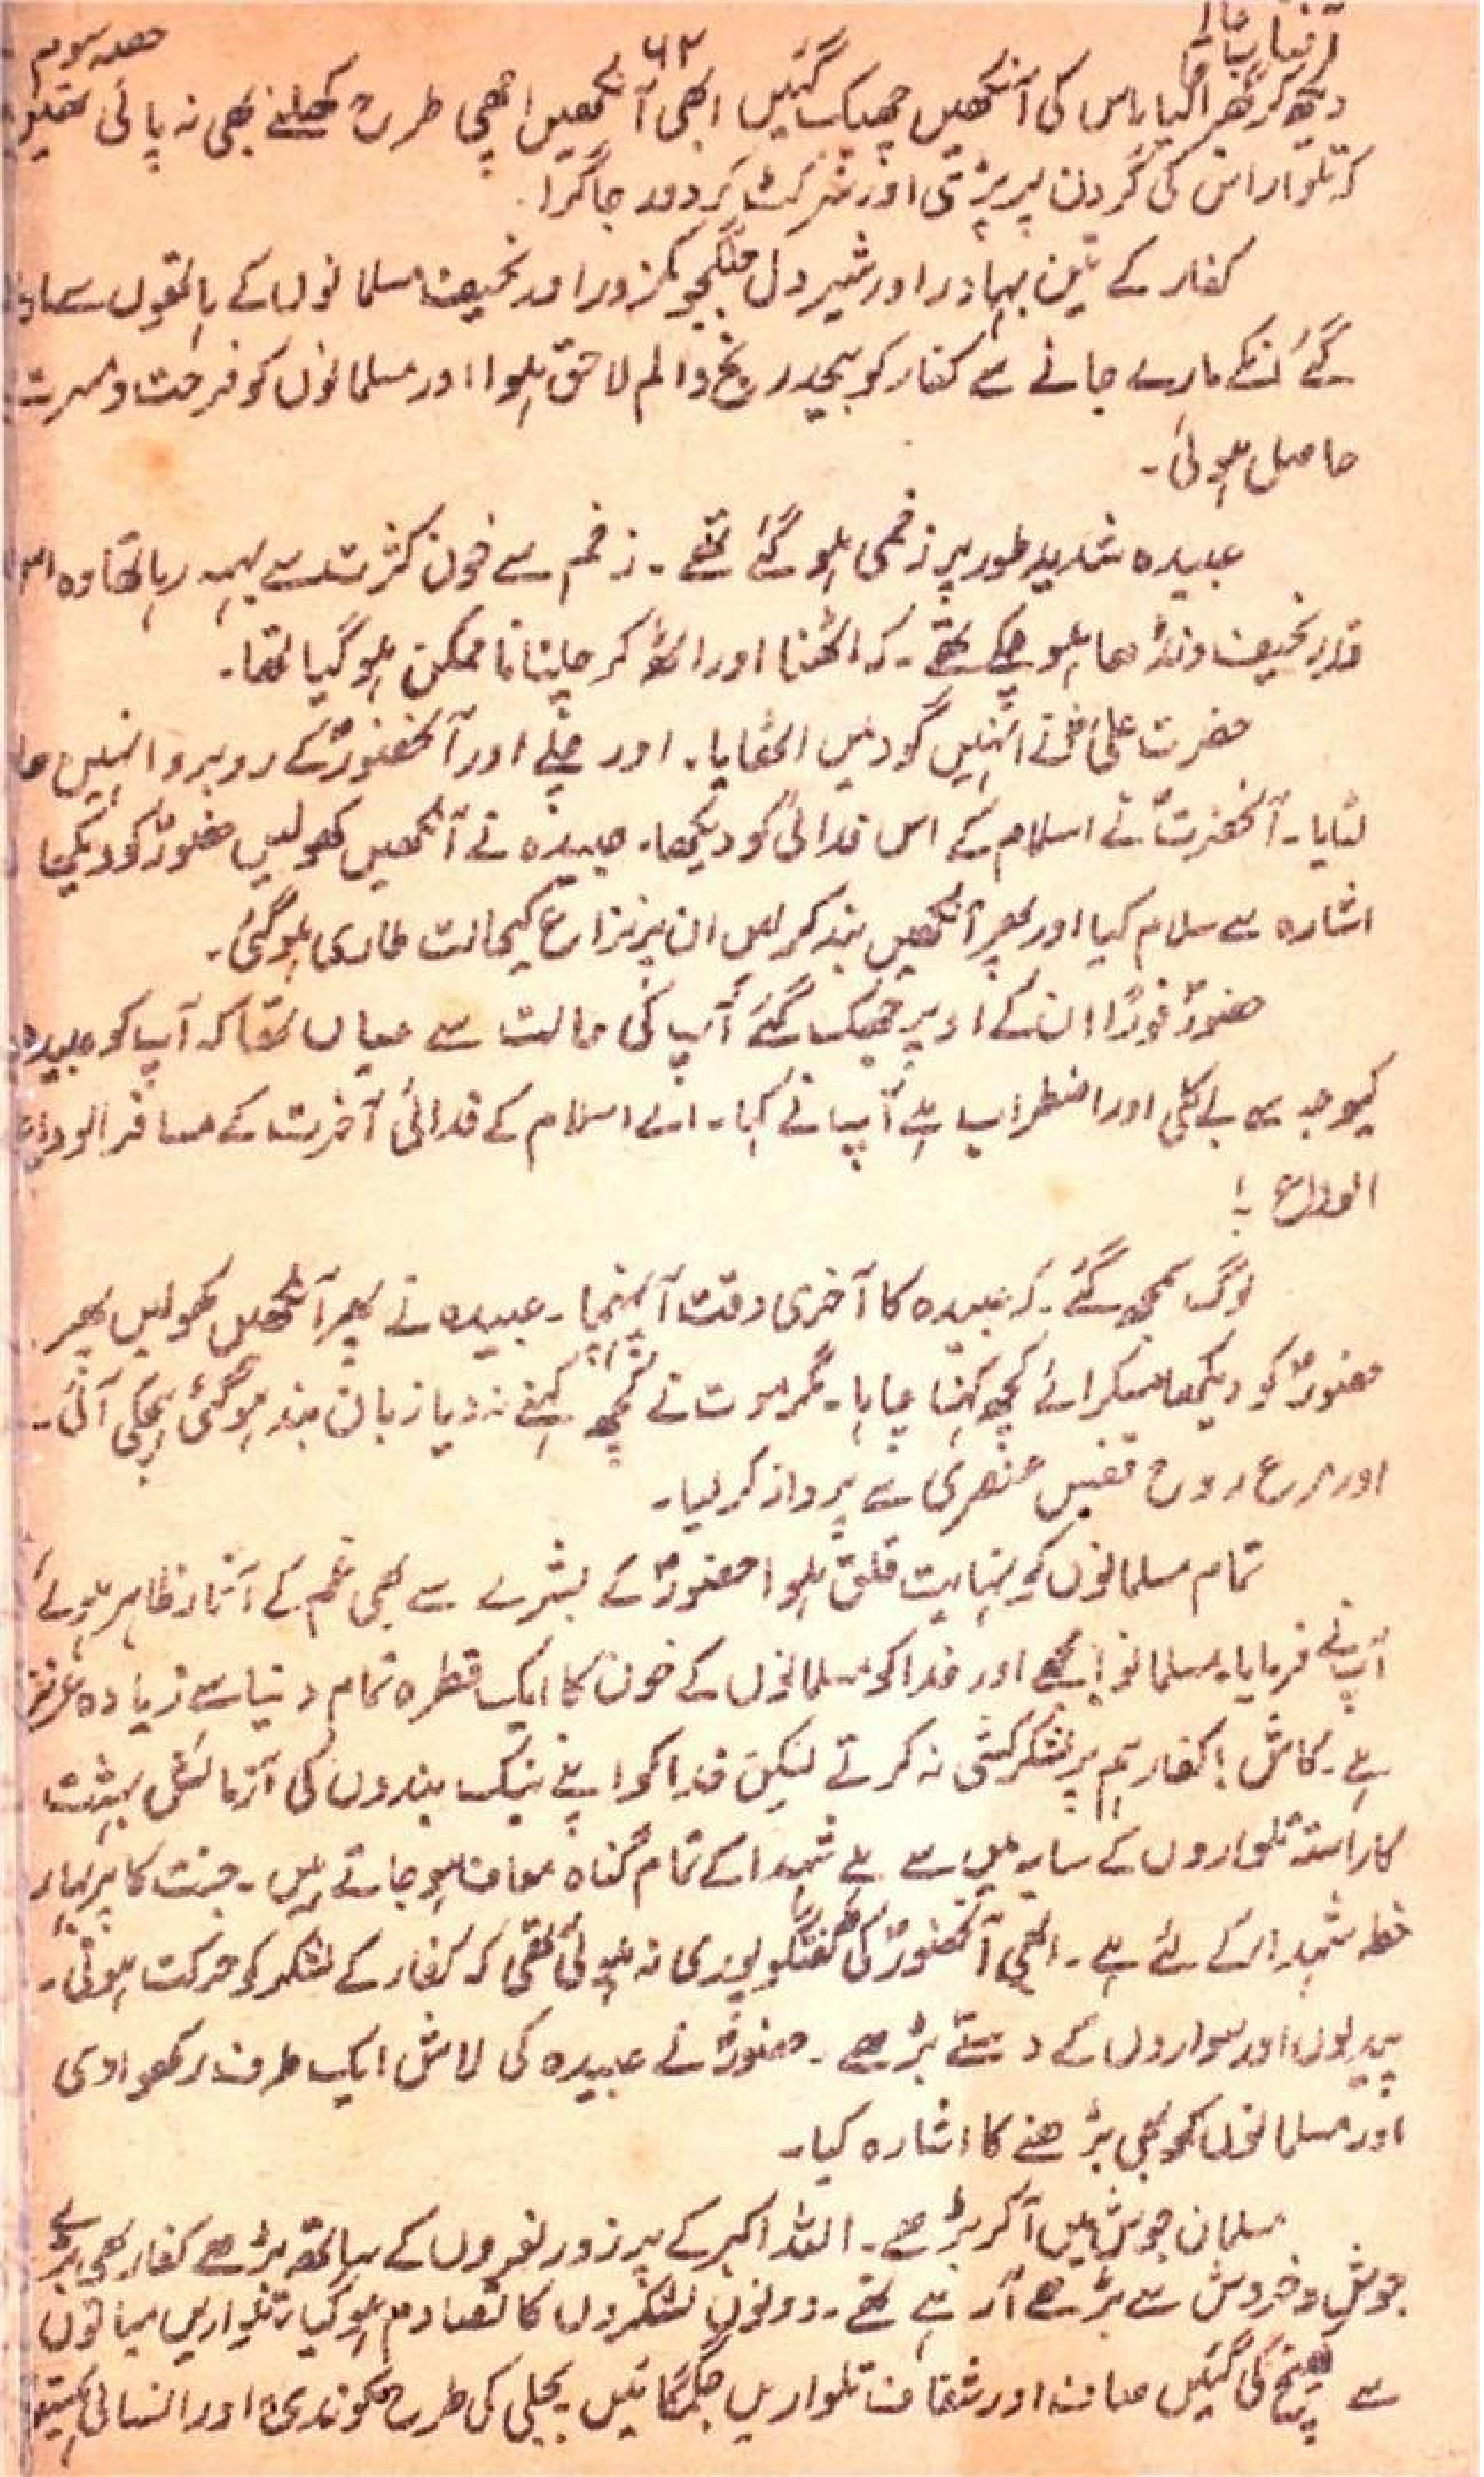 آفتاب عالم ۶۲ حصہ سوم
دیکھ کر گھبرا گیا اس کی آنکھیں جھپک گئیں ابھی آنکھیں اچھی طرح کھلنے بھی نہ پائی تھیں
کہ تلوار اس کی گردن پر پڑتی اور سر کٹ کر دور جا گرا۔
کفار کے تین بہادر اور شیر دل جنگجو کمزور اور نحیف مسلمانوں کے ہاتھوں سے مارے
گئے انکے مارے جانے سے کفار کو بیحد رنج والم لاحق ہوا اور مسلمانوں کو فرحت و مسرت
حاصل ہوئی۔
عبیدہ شدید طور پر زخمی ہو گئے تھے۔ زخم سے خون کثرت سے بہہ رہا تھا وہ اس
قدر نحیف ونڈھا ہو چکے تھے۔ کہ اٹھنا اور اٹھ کر چلنا نا ممکن ہو گیا تھا۔
حضرت علیؓ نے انہیں گود میں اٹھایا۔ اور چلے اور آنحضورؐ کے روبرو انہیں
لٹایا۔ آنحضرتؐ نے اسلام کے اس فدائی کو دیکھا۔ عبیدہ نے آنکھیں کھولیں حضورؐ کو دیکھا
اشارہ سے سلام کیا اور پھر آنکھیں بند کر لیں ان پر نزاع کیحالت طاری ہو گئی۔
حضورؐ فوراً ان کے اوپر جھک گئے آپ کی حالت سے عیاں تھا کہ آپ کو عبیدہ
کیوجہ سے بے کلی اور اضطراب ہے آپ نے کہا۔ اے اسلام کے فدائی آخرت کے مسافر الوداع
الوداع !
لوگ سمجھ گئے۔ کہ عبیدہ کا آخری وقت آ پہنچا۔ عبیدہ نے پھر آنکھیں کھولیں پھر
حضورؐ کو دیکھا مسکرائے کچھ کہنا چاہا۔ مگر موت نے کچھ کہنے نہ دیا زبان بند ہو گئی ہچکی آئی۔
اور مرغ روح قفس عنصری سے پرواز کر گیا۔
تمام مسلمانوں کو نہایت قلق ہوا حضورؐ کے بشرے سے بھی غم کے آثار ظاہر ہوئے
آپ نے فرمایا۔ مسلمانو! مجھے اور خدا کو مسلمانوں کے خون کا ایک قطرہ تمام دنیا سے زیادہ عزیز
ہے۔ کاش! کفار ہم پر لشکر کشی نہ کرتے لیکن خدا کو اپنے نیک بندوں کی آزمائش بہشت
کا راستہ تلواروں کے سایہ میں سے ہے شہدا کے تمام گناہ معاف ہو جاتے ہیں۔ جنت کا پر بہار
خطہ شہدا کے لئے ہے۔ ابھی آنحضورؐ کی گفتگو پوری نہ ہوئی تھی کہ کفار کے لشکر کو حرکت ہوئی۔
پیدلوں اور سواروں کے دستے بڑھے۔ حضورؐ نے عبیدہ کی لاش ایک طرف رکھوا دی
اور مسلمانوں کو بھی بڑھنے کا اشارہ کیا۔
مسلمان جوش میں آکر بڑھے۔ اللہ اکبر کے پر زور نعروں کے ساتھ بڑھے کفار بھی بڑے
جوش و خروش سے بڑھے آ رہے تھے۔ دونوں لشکروں کا تصادم ہو گیا۔ تلواریں میانوں
سے کھینچ لی گئیں صاف اور شفاف تلواریں جگمگائیں بجلی کی طرح کوندی اور انسانی